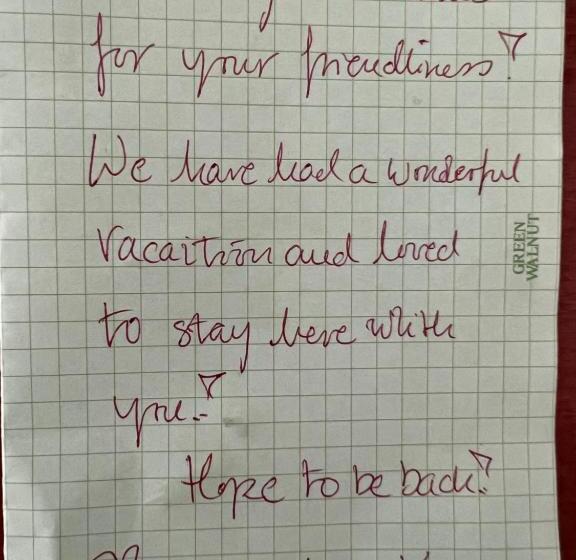 for your friendliness!
We have had a wonderful
vacaition and loved
to stay here whith
you.!
Hope to be back!
GREEN
WALNUT